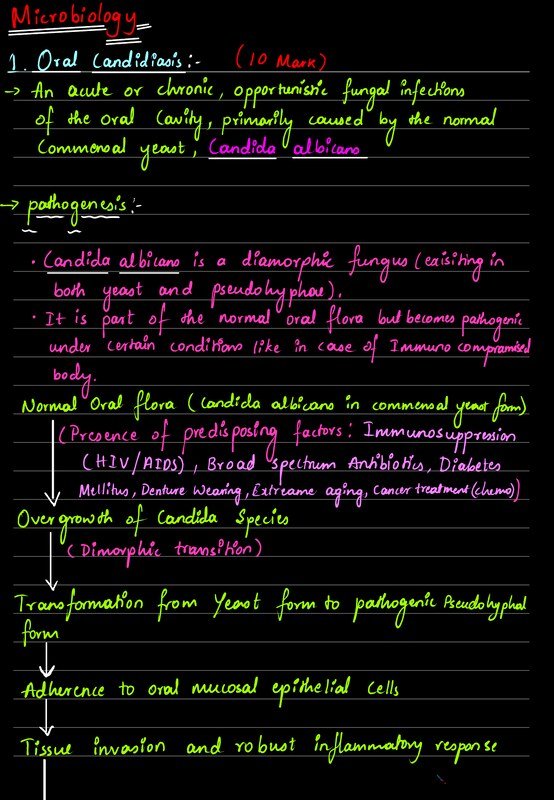 Microbiology
1. Oral Candidiasis:- (10 Mark)
→ An acute or chronic, opportunistic fungal infections
of the oral Cavity, primarily caused by the normal
Commensal yeast, Candida albicans
→ pathogenesis:-
· Candida albicans is a diamorphic fungus (exisiting in
both yeast and pseudohyphae).
· It is part of the normal oral flora but becomes pathogenic
under certain conditions like in case of Immuno compramised
body.
Normal Oral flora (Candida albicans in commensal yeast form)
(Presence of predisposing factors: Immunosuppression
(HIV/AIDS), Broad spectrum Antibiotics, Diabetes
Mellitus, Denture Wearing, Extreame aging, Cancer treatment (chemo))
Overgrowth of Candida Species
(Dimorphic transition)
Transformation from Yeast form to pathogenic Pseudohyphal
form
Adherence to oral mucosal epithelial cells
Tissue invasion and robust inflammatory response